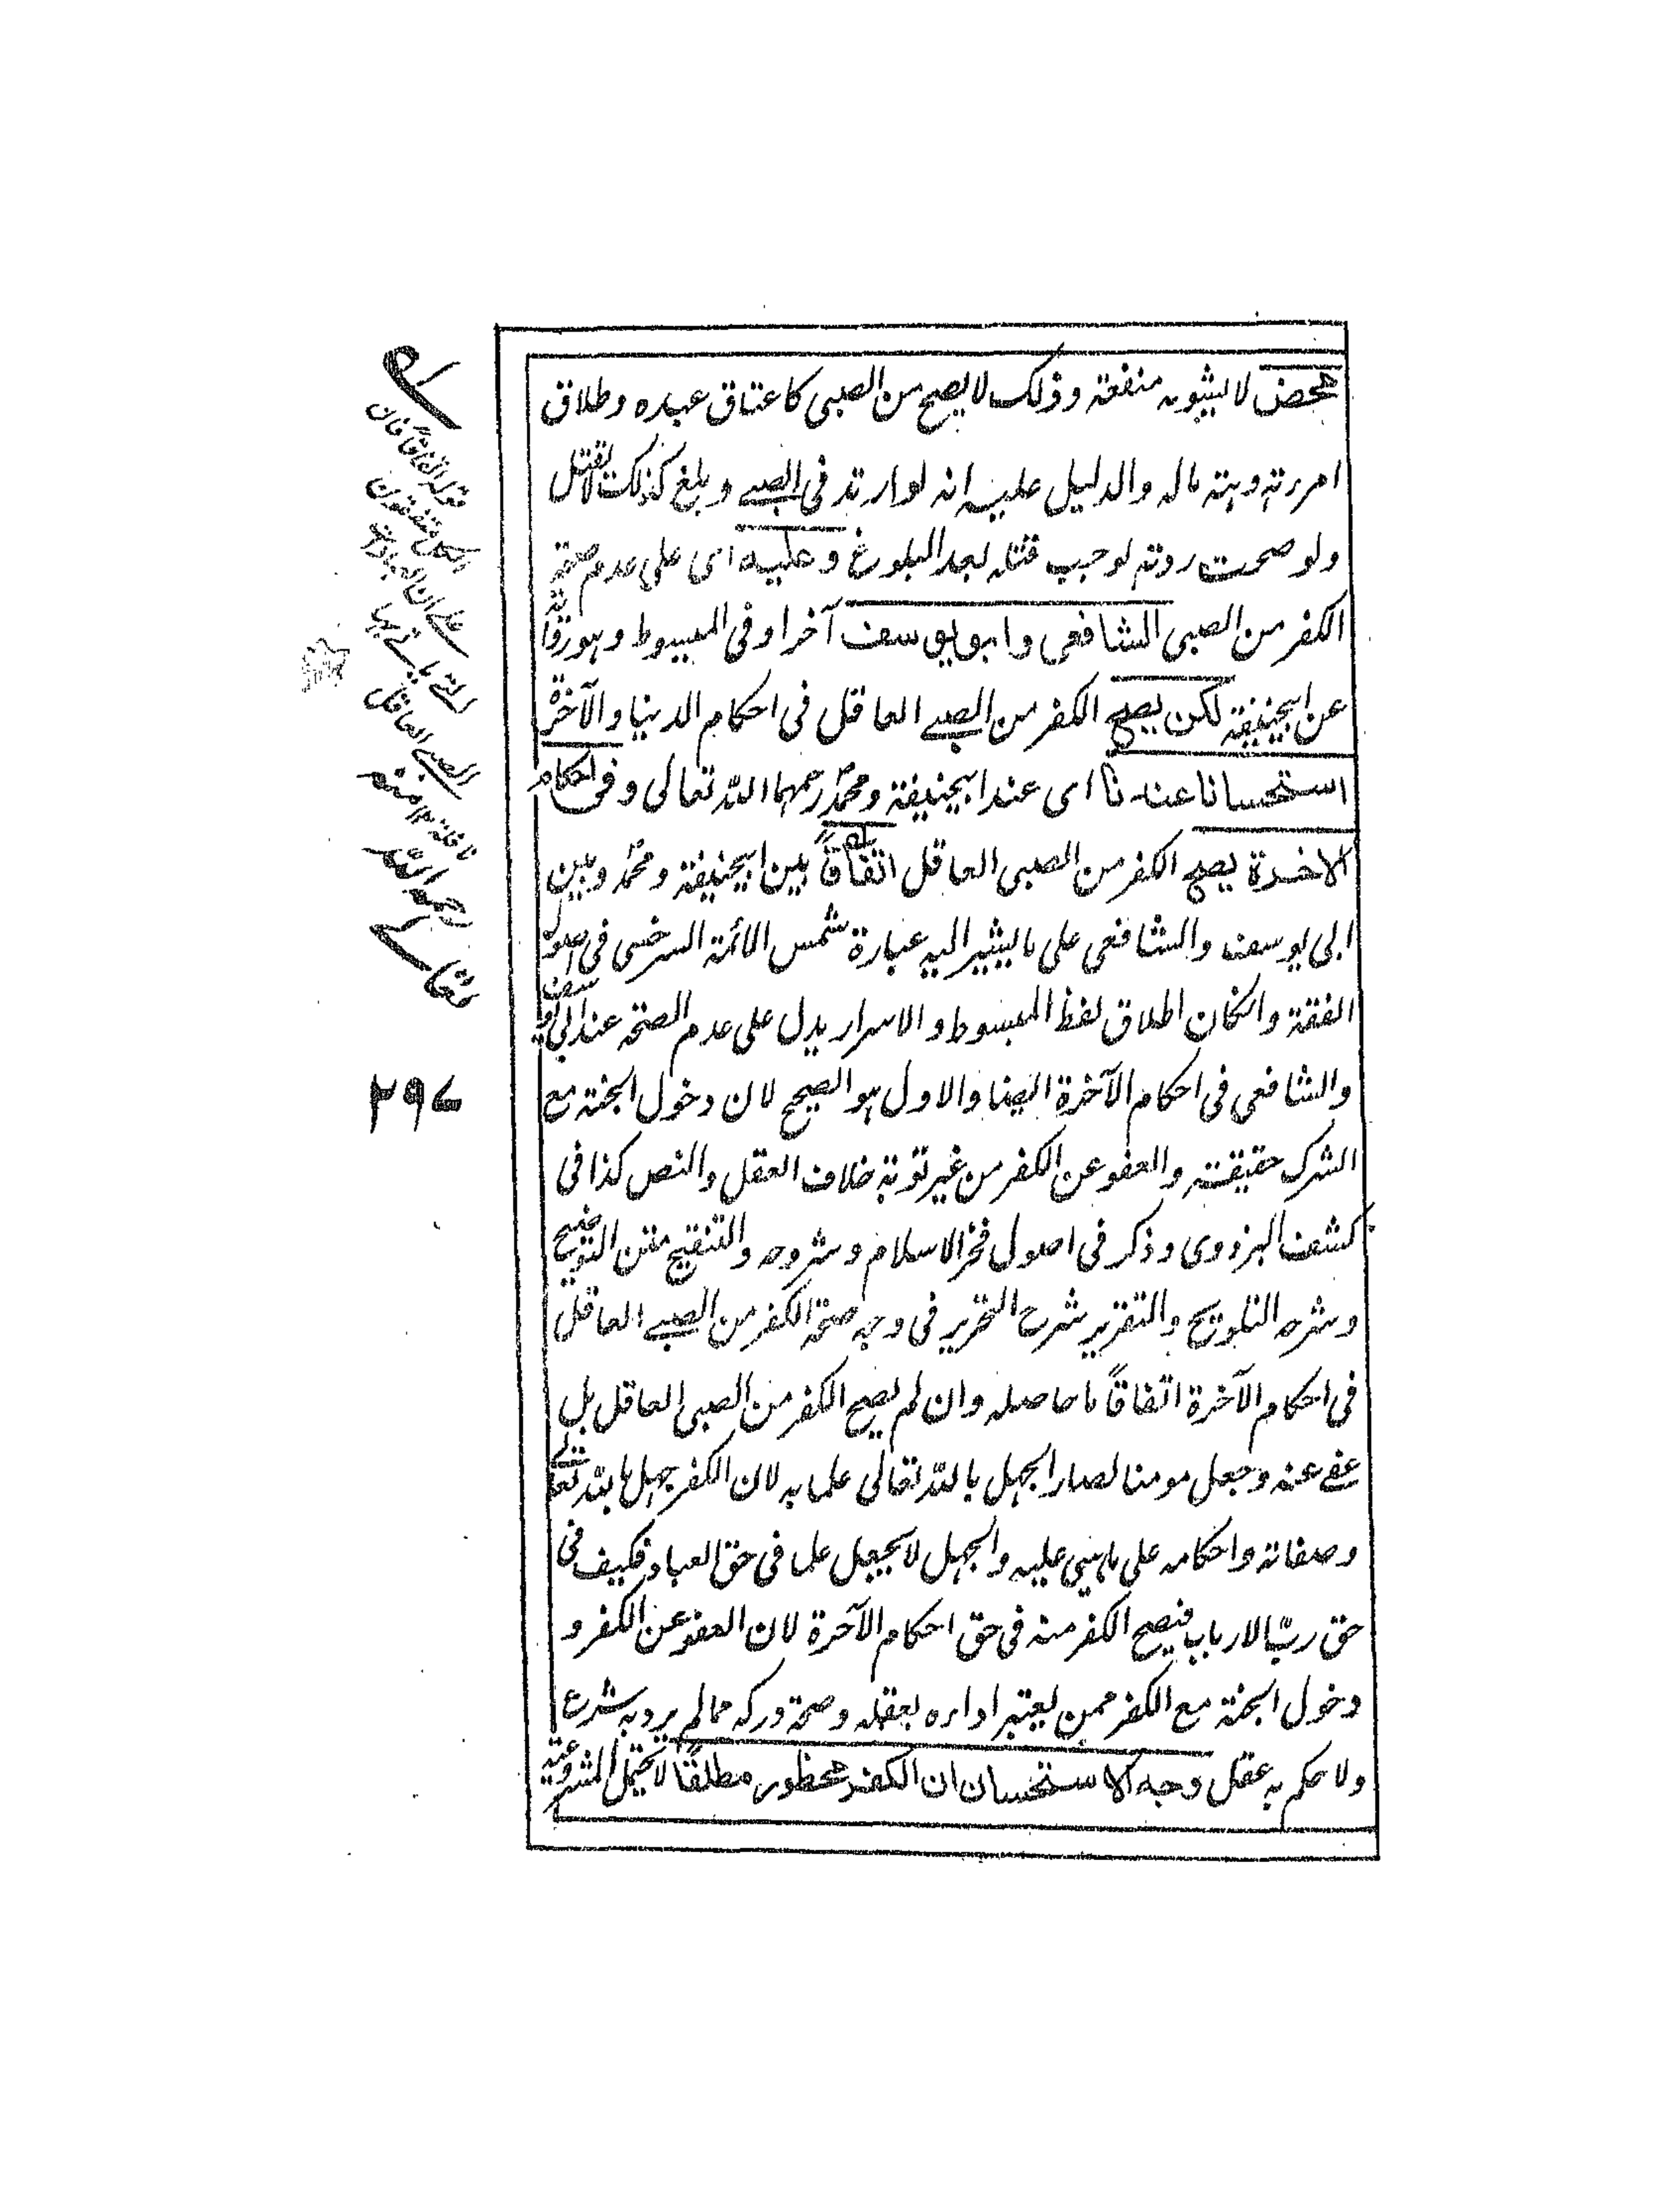 محض لا يشوبه منفعة وذلك لا يصح من الصبى كاعتاق عبده وطلاق
امرءته وہبته ماله والدليل عليه انه لو ارتد فى الصبے وبلغ كذلك لا يقتل
ولو صحت ردته لوجب قتله بعد البلوغ وعليه اى على عدم صحة
الكفر من الصبى الشافعى وابو يوسف آخرا وفى المبسوط وہو رواية
عن ابيحنيفة لكن يصح الكفر من الصبے العاقل فى احكام الدنيا والآخرة
استحسانا عندنا اى عند ابيحنيفة ومحمدؒ رحمہما اللہ تعالى وفى احكام
الاخرة يصح الكفر من الصبى العاقل اتفاقاً بين ابيحنيفة ومحمدؒ وبين
ابى يوسف والشافعى على ما يشير اليه عبارة شمس الائمة السرخسى فى اصول
الفقه وانكان اطلاق لفظ المبسوط والاسرار يدل على عدم الصحة عند ابى يوسف
والشافعى فى احكام الآخرة ايضا والاول ہو الصحيح لان دخول الجنة مع
الشرك حقيقة والعفو عن الكفر من غير توبة خلاف العقل والنص كذا فى
كشف البزدوى وذكر فى اصول فخر الاسلام وشروحه والتنقيح متن التوضيح
وشرحه التلويح والتقرير شرح التحرير فى وجہ صحة الكفر من الصبے العاقل
فى احكام الآخرة اتفاقاً ما حاصله وان لم يصح الكفر من الصبى العاقل بل
عفے عنه وجعل مومنا لصار الجہل باللہ تعالى علما به لان الكفر جہل باللہ تعالے
وصفاته واحكامه على ماہى عليه والجہل لا يجعل علما فى حق العباد فكيف فى
حق ربّ الارباب فيصح الكفر منه فى حق احكام الآخرة لان العفو عن الكفر و
دخول الجنة مع الكفر ممن يعتبر اداءه لعقله وصحة دركه مما لم يرد به شرع
ولا حكم به عقل وجه الاستحسان ان الكفر محظور مطلقاً لا يحتمل المشروعية
قوله اتفاقاً فان
الكل متفقون
الصبے العاقل
منه
رحمه اللہ
تعالے
۲۹۷